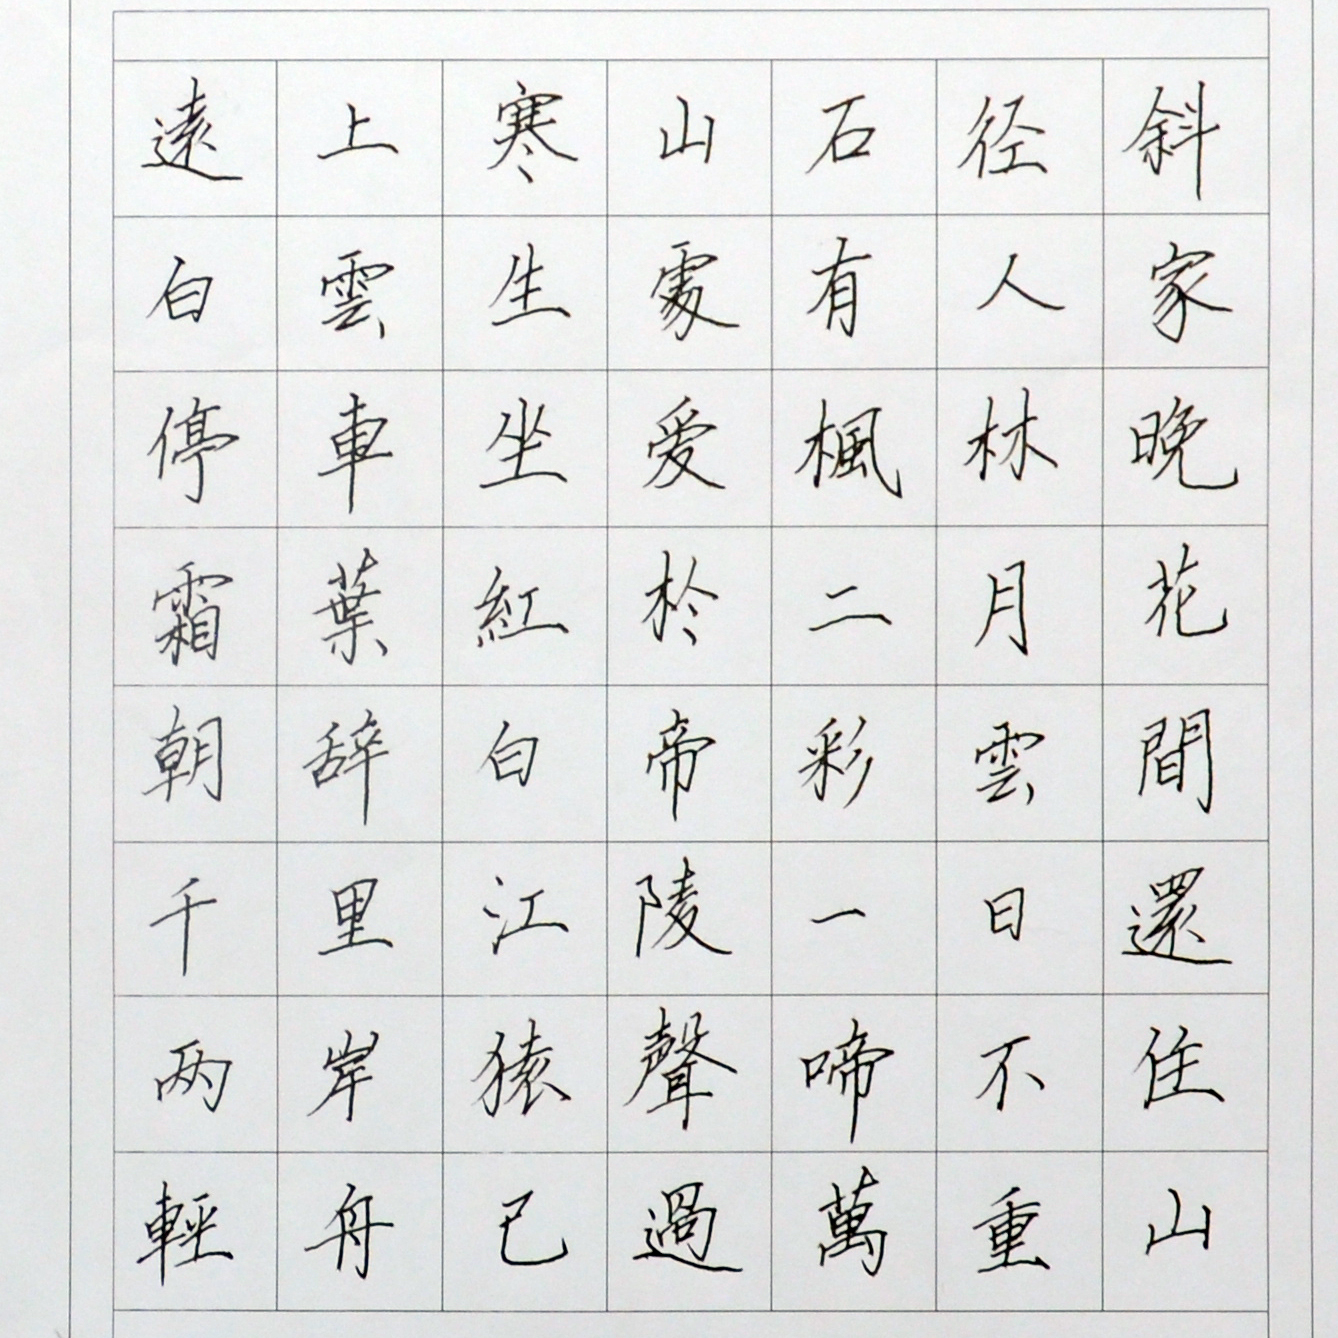 遠上寒山石径斜
白雲生處有人家
停車坐爱楓林晚
霜葉紅於二月花
朝辞白帝彩雲間
千里江陵一日還
两岸猿聲啼不住
輕舟已過萬重山